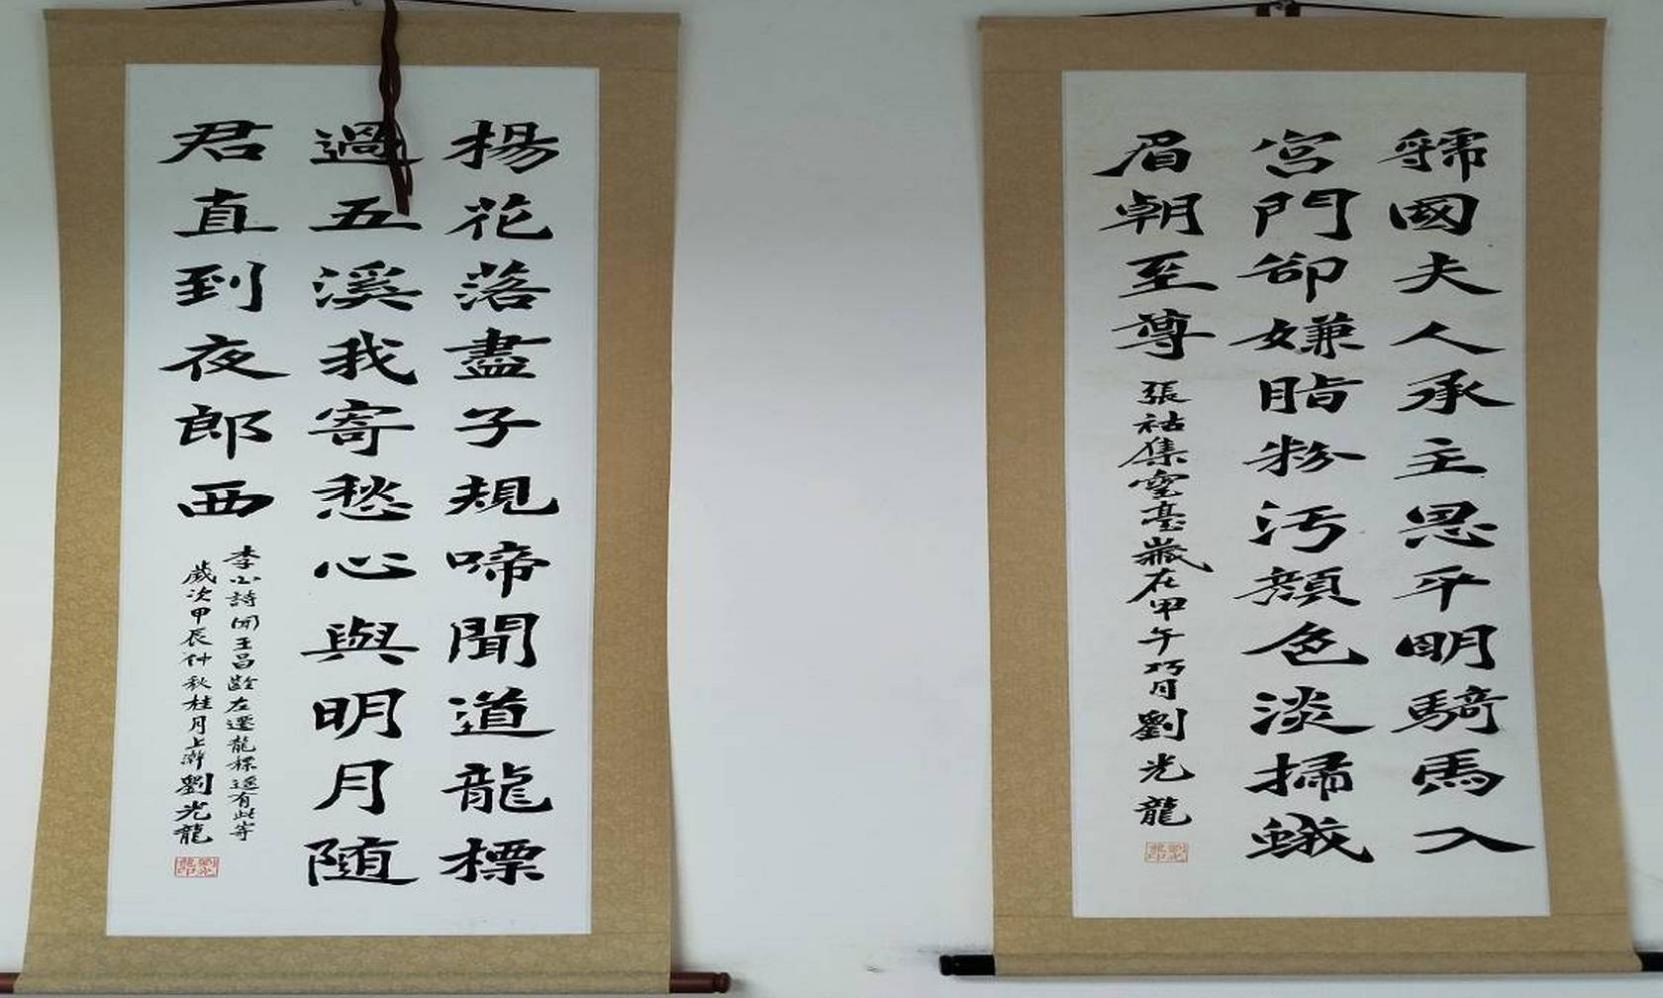 虢國夫人承主恩平明騎馬入
宮門卻嫌脂粉汚顏色淡掃蛾
眉朝至尊 張祜集靈臺歲在甲午巧月劉光龍
劉光龍印
楊花落盡子規啼聞道龍標
過五溪我寄愁心與明月随
君直到夜郎西
李白詩聞王昌齡左遷龍標遥有此寄
歲次甲辰仲秋桂月上澣劉光龍
劉光龍印